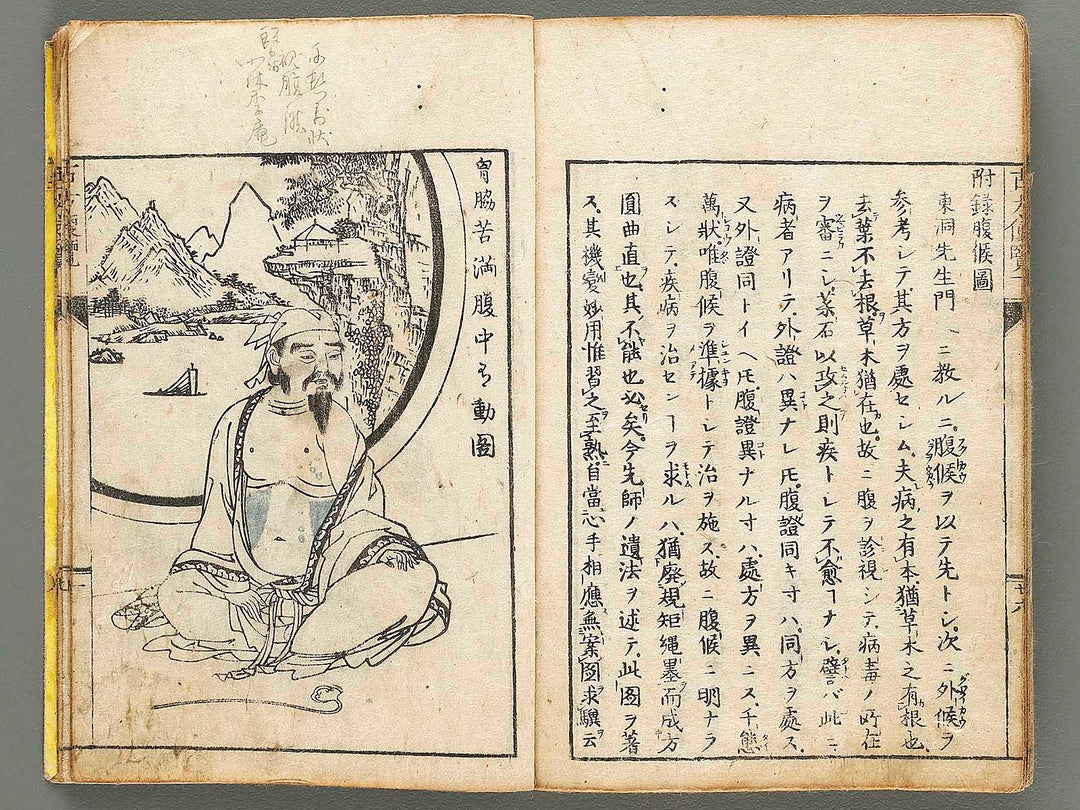 附録腹候圖
東洞先生門人ニ教ルニ腹候ヲ以テ先トシ次ニ外候ヲ
参考シテ其方ヲ處セシム夫病之有本猶草木之有根也
去葉不去根草木猶在也故ニ腹ヲ診視シテ病毒ノ所在
ヲ審ニシ薬石以攻之則疾トシテ不愈ヿナシ譬バ此ニ
病者アリテ外證ハ異ナレ𪜈腹證同キ寸ハ同方ヲ處ス
又外證同トイヘ𪜈腹證異ナル寸ハ處方ヲ異ニス千態
萬狀唯腹候ヲ準據トシテ治ヲ施ス故ニ腹候ニ明ナラ
スシテ疾病ヲ治センヿヲ求ルハ猶廃規矩縄墨而成方
圓曲直也其不能也必矣今先師ノ遺法ヲ述テ此圖ヲ著
ス其機變妙用惟習之至熟自當心手相應無案圖求驥云
胷脇苦満腹中有動圖